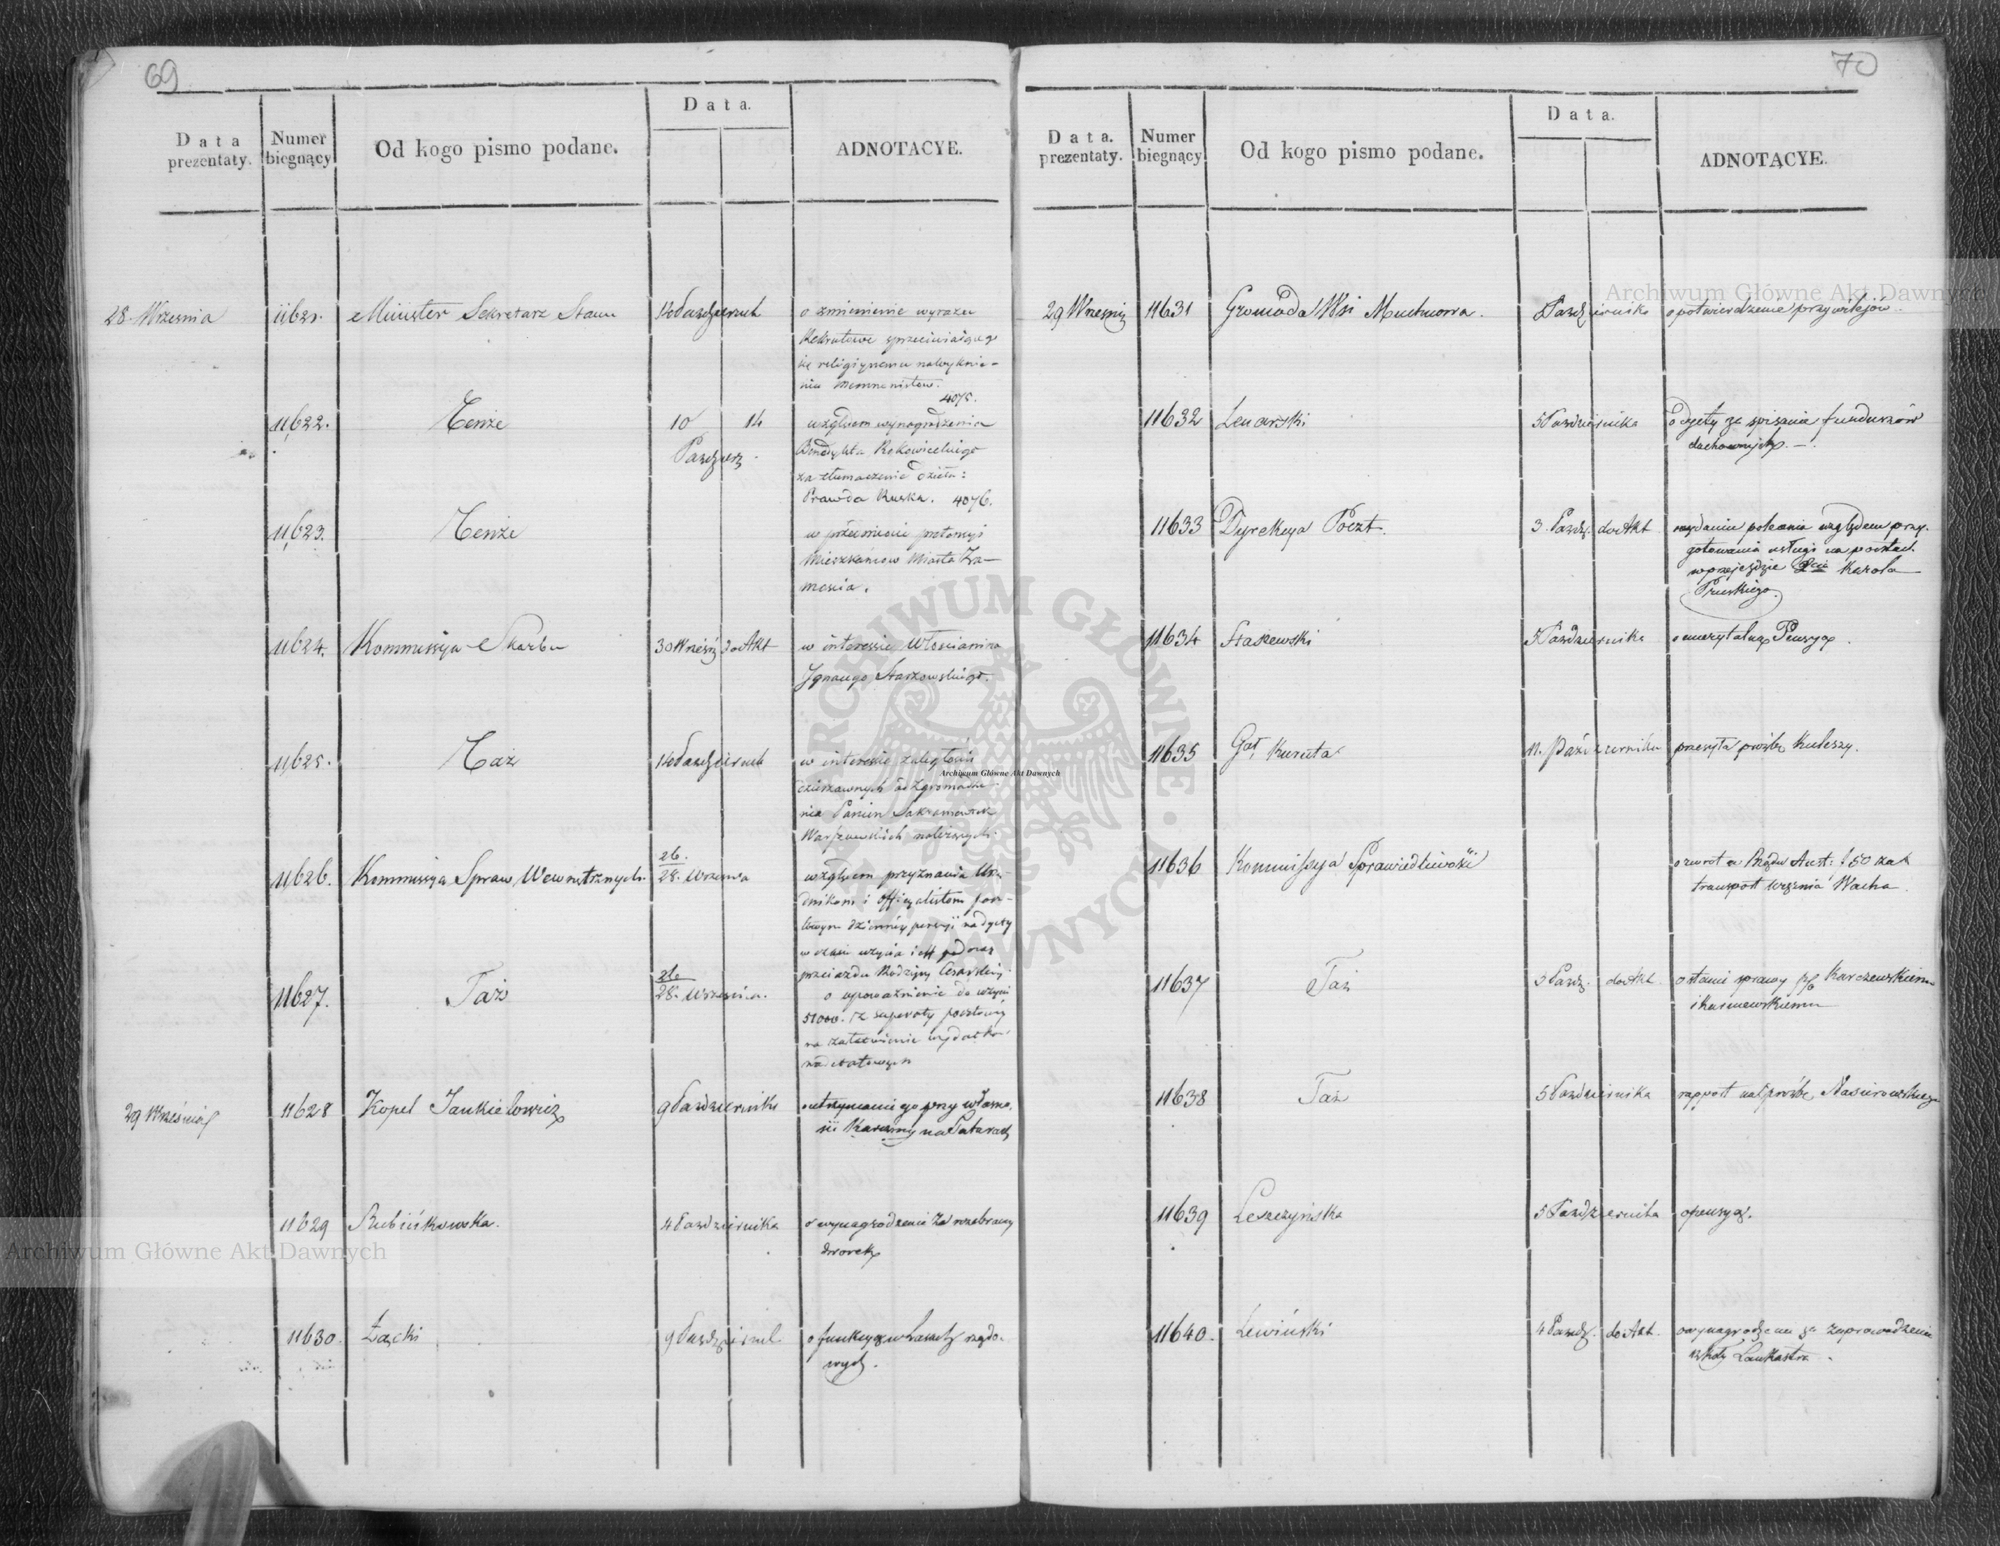 69
Data prezentaty.
Numer biegnący
Od kogo pismo podane.
Data.
ADNOTACYE.
28 Września
11621.
Minister Sekretarz Stanu
14 Październik
o zmienienie wyrazu
religijnemu nawyknie-
niu Mennonistów.
4075.
11622.
Tenże
10 14
Paździer.
względem wynagrodzenia
Benedykta
za tłumaczenie dzieła:
Prawda Ruska. 4076.
11623.
Tenże
w przedmiocie
Mieszkańców Miasta Za-
mościa.
11624.
Kommissya Skarbu
30 Wrześ. do Akt
w interessie Włościanina
Ignacego Staszowskiego.
11625.
Taż
14 Październik
w interessie zaległości
dzierżawnych od Zgromadze-
nia Panien Sakramentek
Warszawskich należnych.
11626.
Kommissya Spraw Wewnętrznych.
26.
28. Września
względem przyznania Urzę-
dnikom i Officyalistom pocz-
towym dziennéj pensyi
w czasie użycia ich podczas
przejazdu Rodziny Cesarskiéj.
11627.
Taż
26.
28. Września.
o upoważnienie do użycia
51000. z superaty pocztowej
na załatwienie wydatków
nadetatowych
29 Września
11628
Kopel Jankielowicz
9 Października
o utrzymanie go przy własno-
ści Karczmy na Tatarach
11629
Rubinkowska.
4 Października
o wynagrodzenie za rozebrany
dworek
11630.
Łącki
9 Paździenik
o funkcyą w Lasach rządo-
wych.
70
Data. prezentaty.
Numer biegnący
Od kogo pismo podane.
Data.
ADNOTĄCYE.
29 Wrześnią
11631
Gromada Wsi Muchnowa.
Października
o potwierdzenie przywilejów.
11632
Lenarski
5 Października
o dyety ze spisania funduszów
duchownych. —
11633
Dyrekcya Poczt.
3. Paźdz. do Akt
wydaniu polecenia względem przy-
gotowania usługi na pocztach
w przejeździe Xcia Karola
Pruskiego.
11634
Staszewski
5 Października
o emerytalną Pensyą.
11635
Gał. Kuruta
11. Października
przesyła prośbę Kuleszy.
11636
Kommissya Sprawiedliwości
o zwrot a Rządu Aust: f 50 za
transport więźnia Wacha.
11637
Taż
3 Paźdz. do Akt.
o stanie sprawy p/ko Karczewskiemu
i Karniewskiemu
11638
Taż
5 Października
rapport na prośbę Nasierowskiego
11639
Leszczyńska
5 Października
o pensyą.
11640.
Lewiński
4 Paźdz. do Akt.
o wynagrodzenie za zaprowadzenie
szkoły Lankastra.
Archiwum Główne Akt Dawnych
Archiwum Główne Akt Dawnych
Archiwum Główne Akt Dawnych
ARCHIWUM GŁÓWNE AKT DAWNYCH